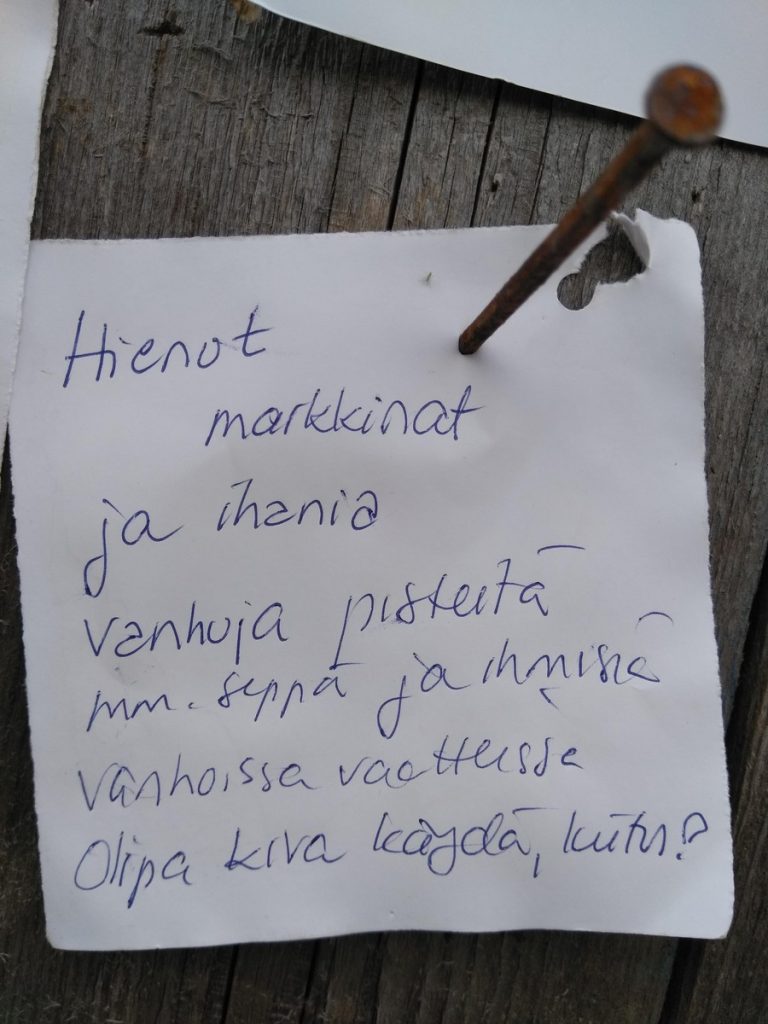 Hienot
markkinat
ja ihania
vanhoja pisteitä
mm. seppä ja ihmisiä
vanhoissa vaatteissa
Olipa kiva käydä, kiitos!